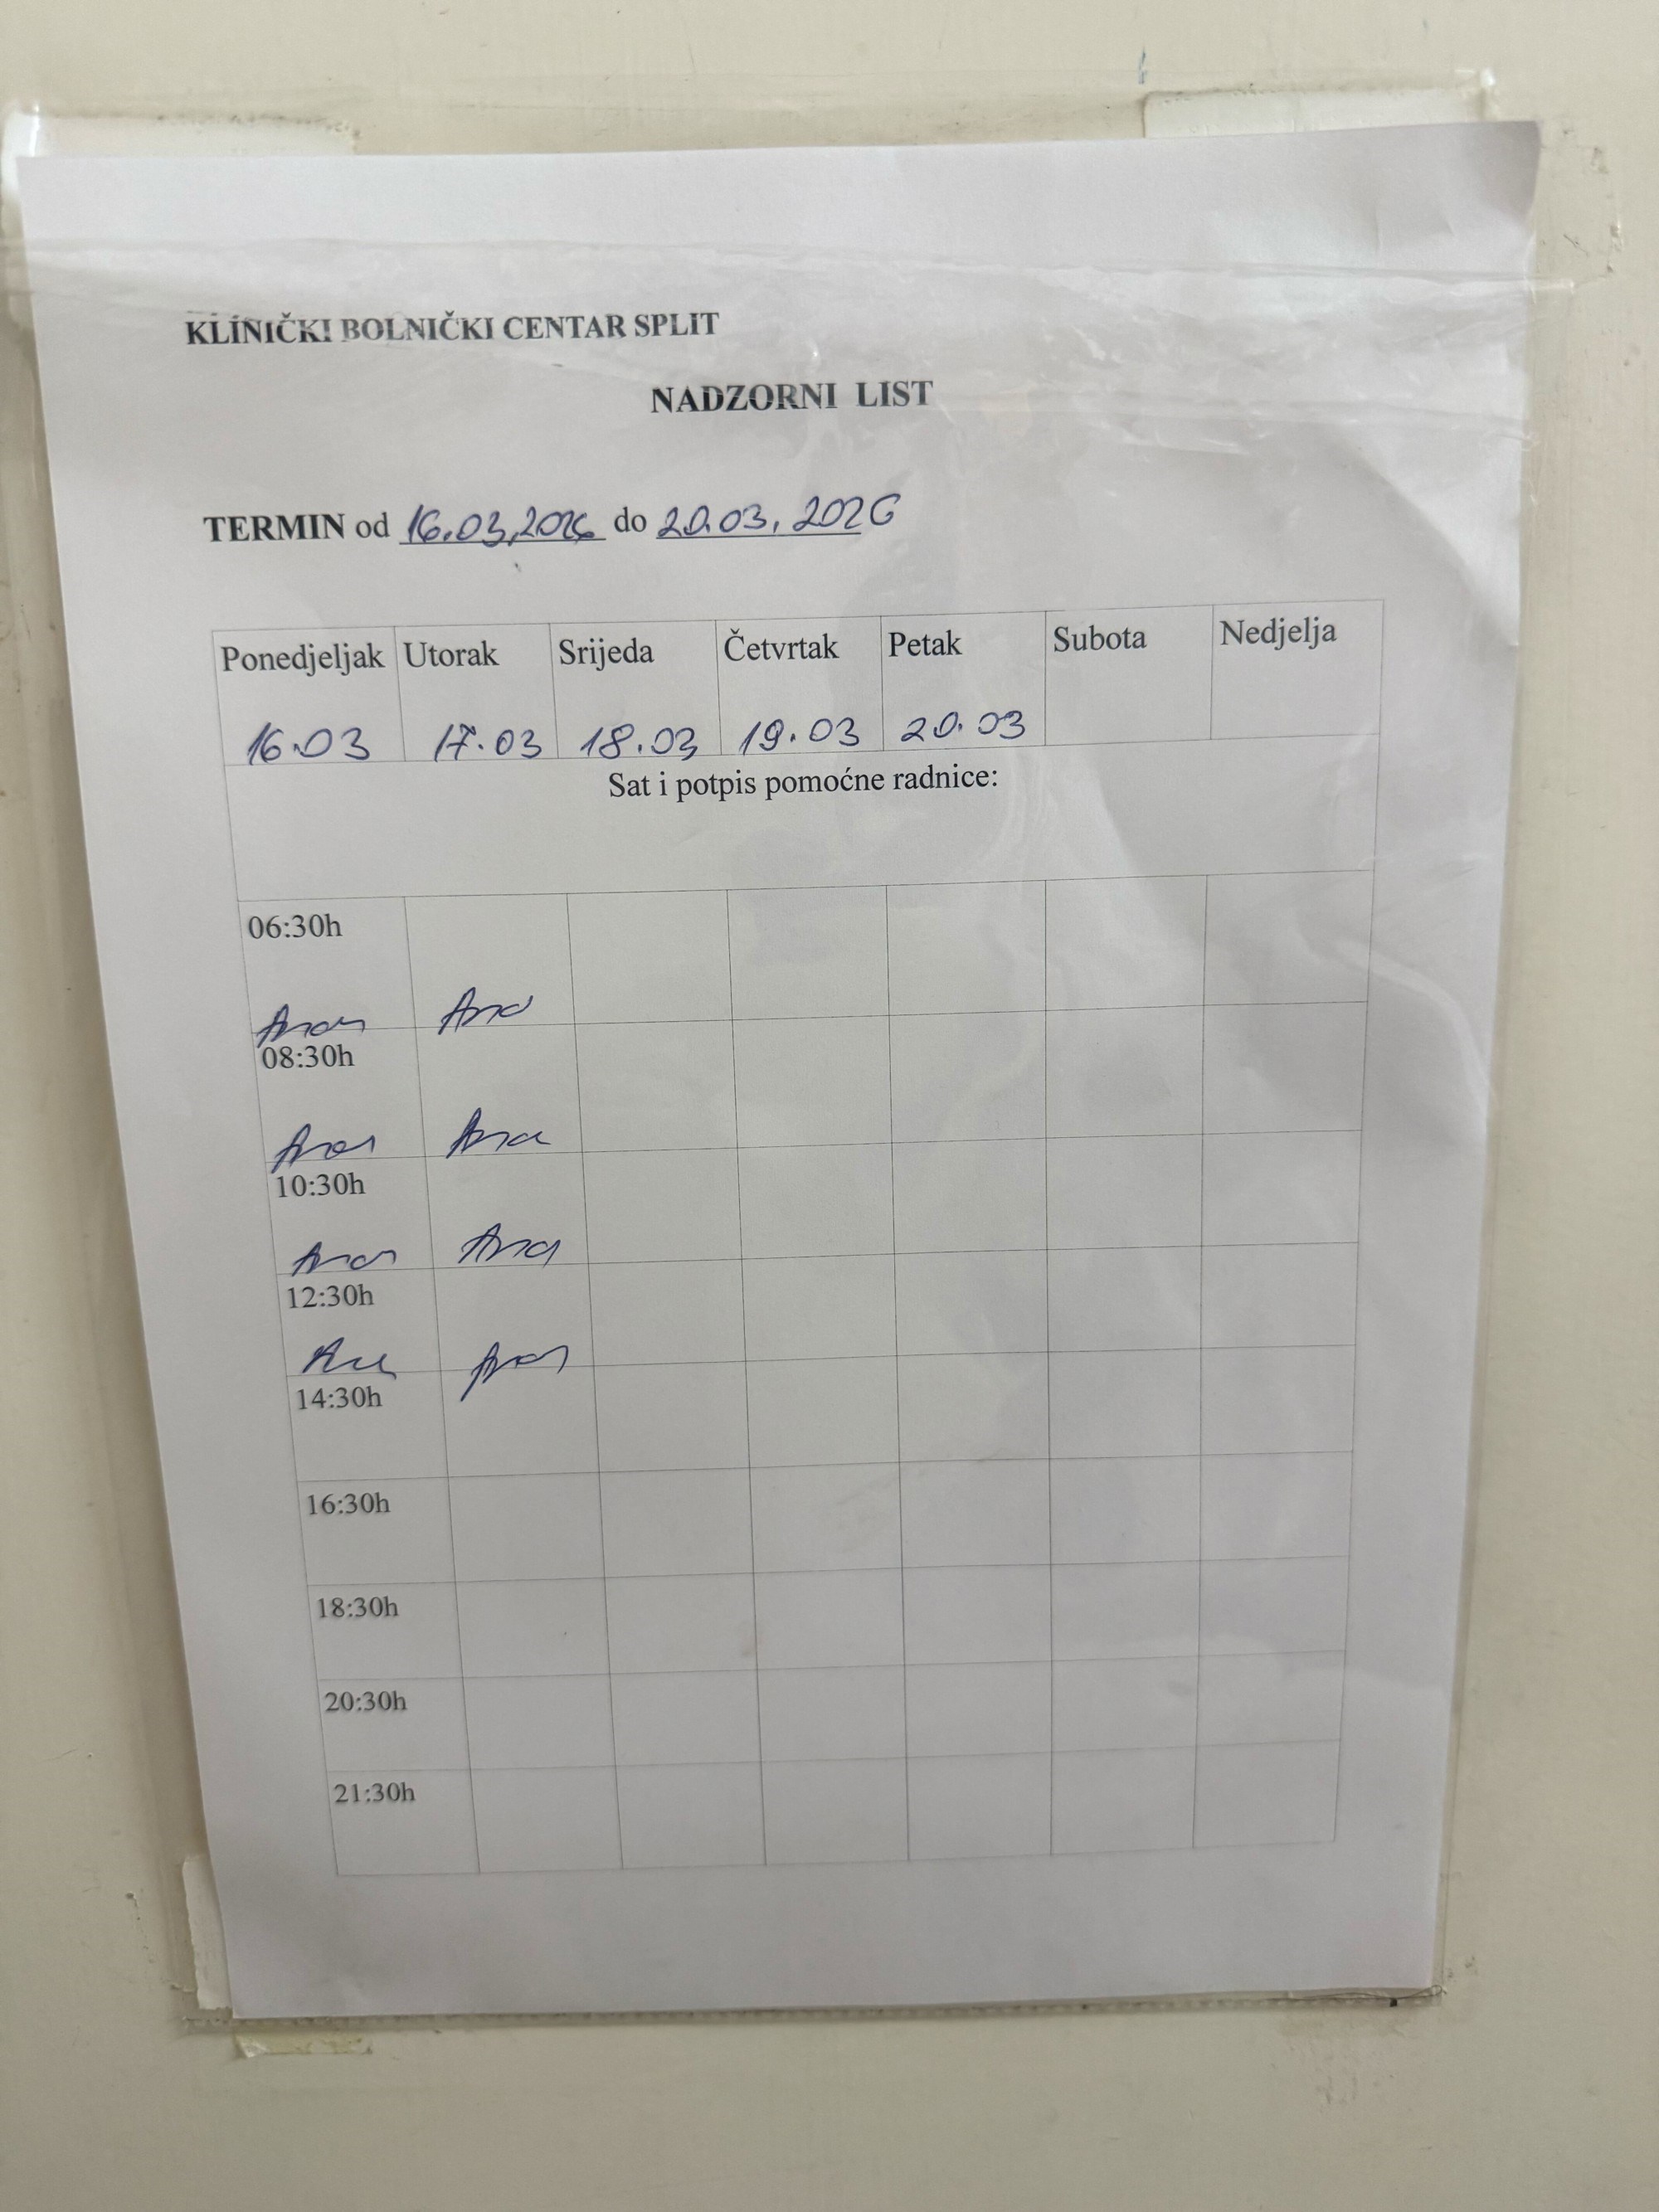 KLINIČKI BOLNIČKI CENTAR SPLIT
NADZORNI LIST
TERMIN od 16.03.2026 do 20.03.2026
Ponedjeljak Utorak Srijeda Četvrtak Petak Subota Nedjelja
16.03 17.03 18.03 19.03 20.03
Sat i potpis pomoćne radnice:
06:30h
Ana Ana
08:30h
Ana Ana
10:30h
Ana Ana
12:30h
Ana Ana
14:30h
16:30h
18:30h
20:30h
21:30h